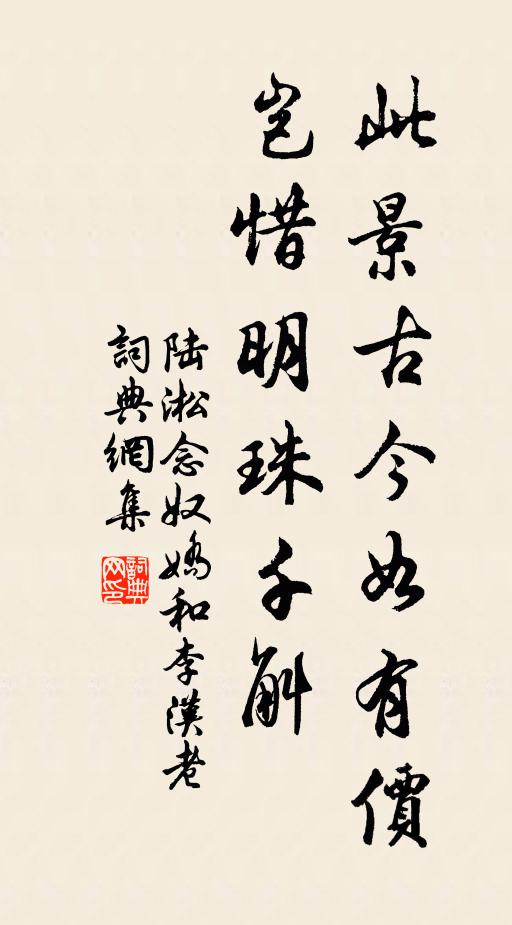 此景古今如有價
豈惜明珠千斛
陆淞念奴嬌和李漢老
詞典網集
詞典网印